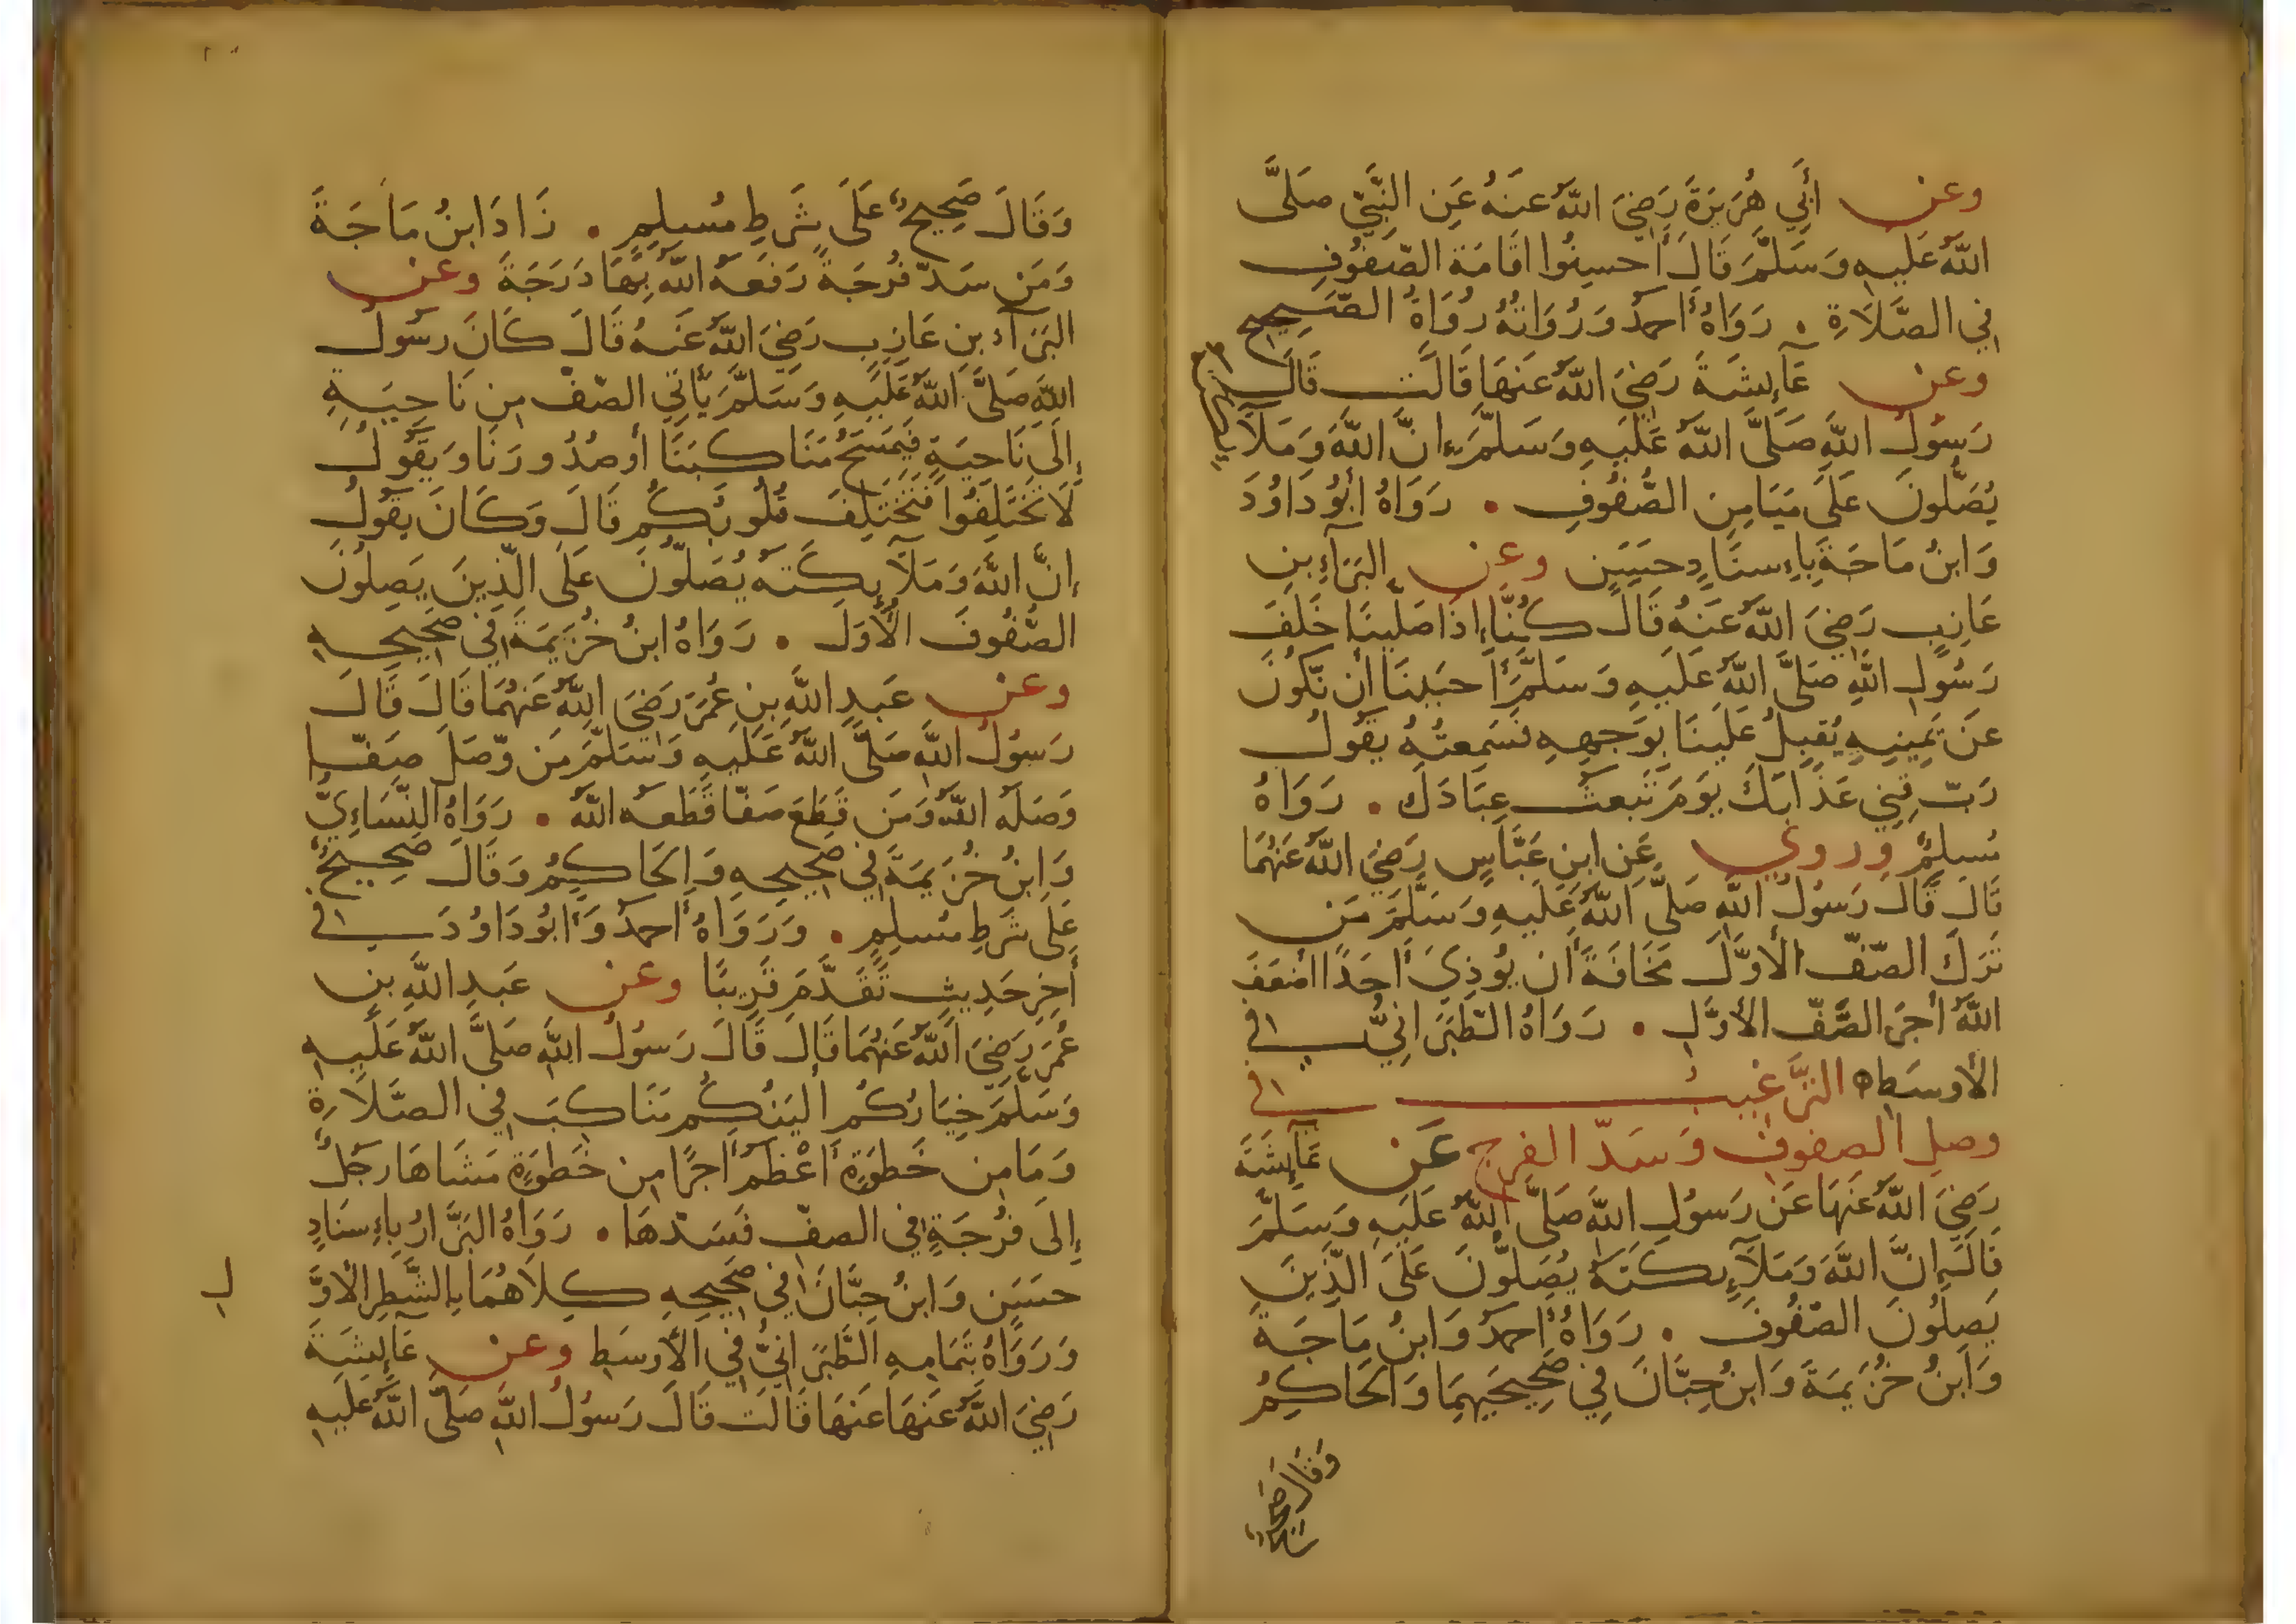 وعن أَبِي هُرَيرَةَ رَضِيَ اللّهُ عنهُ عَنِ النَّبِيِّ صَلَّى
اللّهُ عَلَيهِ وَسَلَّمَ قَالَ أَحسِنُوا اقَامَةَ الصّفُوفِ
فِي الصَّلَاةِ . رَوَاهُ أَحمدُ وَرُوَاتُهُ رُوَاةُ الصَّحِيحِ
وعن عَآيِشَةَ رَضِيَ اللّهُ عَنهَا قَالَت قَالَ
رَسُولُ اللَّهِ صَلَّى اللّهُ عَلَيهِ وَسَلَّمَ إنَّ اللَّهَ وَمَلَآيِكَتَهُ
يُصَلُّونَ عَلَى مَيَامِنِ الصُّفُوفِ . رَوَاهُ أَبُو دَاوُدَ
وَابنُ مَاجَةَ بِإِسنَادٍ حَسَنٍ وعن البَرَآءِ بنِ
عَازِبٍ رَضِيَ اللّهُ عَنهُ قَالَ كُنَّا إِذَا صَلَّينَا خَلفَ
رَسُولِ اللَّهِ صَلَّى اللّهُ عَلَيهِ وَسَلَّمَ أَحبَبنَا أَن نَكُونَ
عَن يَمِينِهِ يُقبِلُ عَلَينَا بِوَجهِهِ فَسَمِعتُهُ يَقُولُ
رَبِّ قِنِي عَذَابَكَ يَومَ تَبعَثُ عِبَادَكَ . رَوَاهُ
مُسلِمٌ وروي عَن ابنِ عَبَّاسٍ رَضِيَ اللّهُ عَنهُمَا
قَالَ قَالَ رَسُولُ اللَّهِ صَلَّى اللّهُ عَلَيهِ وَسَلَّمَ مَن
تَرَكَ الصّفّ الأَوَّلَ مَخَافَةَ أَن يُوذِيَ أَحَدًا اضعَفَ
اللّهُ أَجرَ الصَّفّ الأَوَّلِ . رَوَاهُ الطَّبَرَانِيُّ في
الأَوسَطِ ه التَّرغيبُ في
وصلِ الصفوفِ وَسَدّ الفرجِ عَن عَآيِشَةَ
رَضِيَ اللّهُ عَنهَا عَن رَسُولِ اللَّهِ صَلَّى اللّهُ عَلَيهِ وَسَلَّمَ
قَالَ إنَّ اللَّهَ وَمَلَآيِكَتَهُ يُصَلُّونَ عَلَى الَّذِينَ
يَصِلُونَ الصّفُوفَ . رَوَاهُ أَحمدُ وَابنُ مَاجَةَ
وَابنُ خُزَيمَةَ وَابنُ حِبَّانَ فِي صَحِيحَيهِمَا وَالحَاكِمُ
وَقَالَ صَحِيحٌ
وَقَالَ صَحِيحٌ عَلَى شَرطِ مُسلِمٍ . زَادَ ابنُ مَاجَةَ
وَمَن سَدّ فُرجَةً رَفَعَهُ اللّهُ بِهَا دَرَجَةً وعن
البَرَآءِ بنِ عَازِبٍ رَضِيَ اللّهُ عَنهُ قَالَ كَانَ رسُولُ
اللَّهِ صَلَّى اللّهُ عَلَيهِ وَسَلَّمَ يَأتِي الصّفّ مِن نَاحِيَةٍ
إِلَى نَاحِيَةٍ فَيَمسَحُ مَنَاكِبَنَا أَو صُدُورَنَا وَيَقُولُ
لَا تَختَلِفُوا فَتَختَلِفَ قُلُوبُكُم قَالَ وَكَانَ يَقُولُ
إنَّ اللَّهَ وَمَلَآيِكَتَهُ يُصَلُّونَ عَلَى الَّذِينَ يَصِلُونَ
الصُّفُوفَ الأُوَلَ . رَوَاهُ ابنُ خُزَيمَةَ فِي صَحِيحِهِ
وعن عَبدِ اللَّهِ بنِ عُمَرَ رَضِيَ اللّهُ عَنهُمَا قَالَ قَالَ
رَسُولُ اللَّهِ صَلَّى اللّهُ عَلَيهِ وَسَلَّمَ مَن وَصَلَ صَفّا
وَصَلَهُ اللّهُ وَمَن قَطَعَ صَفّا قَطَعَهُ اللّهُ . رَوَاهُ النَّسَاءِيُّ
وَابنُ خُزَيمَةَ فِي صَحِيحِهِ وَالحَاكِمُ وَقَالَ صَحِيحٌ
عَلَى شَرطِ مُسلِمٍ . وَرَوَاهُ أَحمدُ وَأَبُو دَاوُدَ في
أَخِرِ حَدِيثٍ تَقَدَّمَ قَرِيبًا وعن عَبدِ اللَّهِ بنِ
عُمَرَ رَضِيَ اللّهُ عَنهُمَا قَالَ قَالَ رَسُولُ اللَّهِ صَلَّى اللّهُ عَلَيهِ
وَسَلَّمَ خِيَارُكُم أَليَنُكُم مَنَاكِبَ فِي الصَّلَاةِ
وَمَا مِن خَطوَةٍ أَعْظَمُ أَجرًا مِن خَطوَةٍ مَشَاهَا رَجُلٌ
إِلَى فُرجَةٍ فِي الصفّ فَسَدّهَا . رَوَاهُ البَزَّارُ بِإِسنَادٍ
حسَنٍ وَابنُ حِبَّانَ فِي صَحِيحِهِ كِلَاهُمَا بِالشَّطرِ الأَوَّ
لِ
وَرَوَاهُ بِتَمَامِهِ الطَّبَرَانِيُّ فِي الأَوسَطِ وعن عَآيِشَةَ
رَضِيَ اللّهُ عَنهَا عَنهَا قَالَت قَالَ رَسُولُ اللَّهِ صَلَّى اللّهُ عَلَيهِ